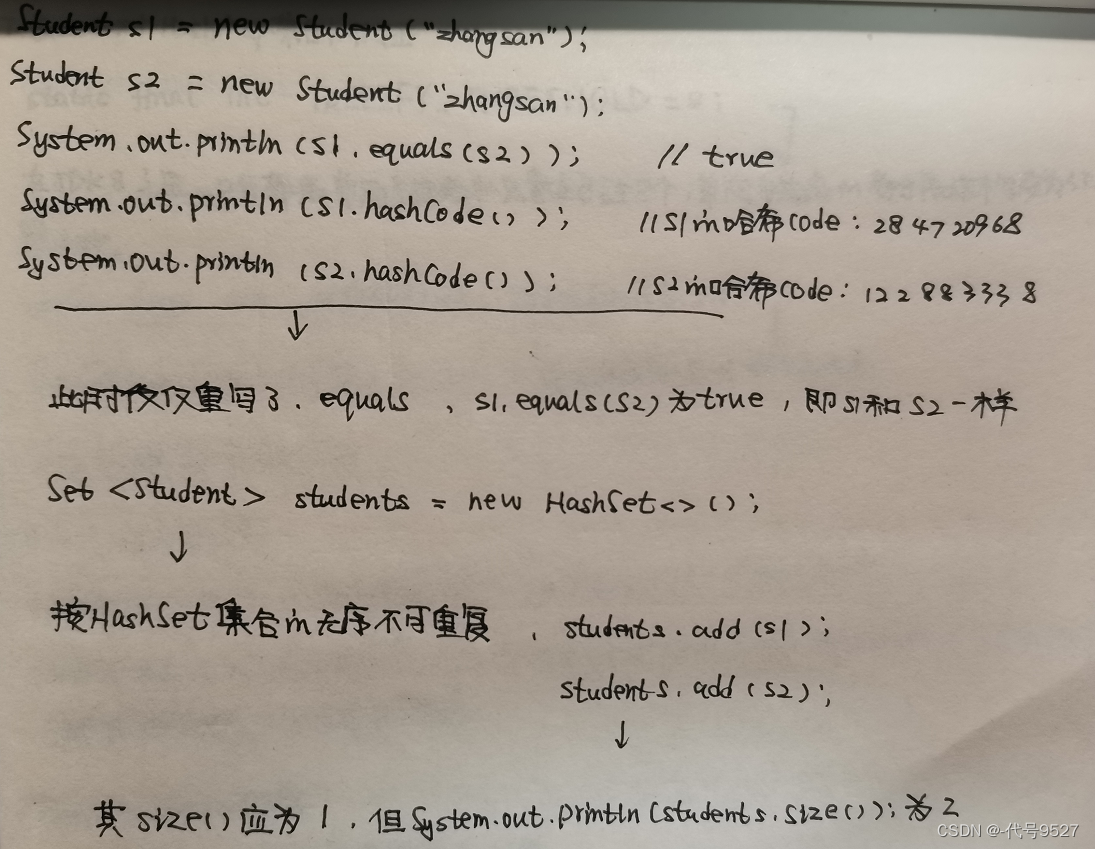 Student s1 = new Student ("zhangsan");
Student s2 = new Student ("zhangsan");
System.out.println (s1.equals(s2)); // true
System.out.println (s1.hashCode()); //s1的哈希code: 284720968
System.out.println (s2.hashCode()); //s2的哈希code: 122883338
此时仅仅重写了、equals 、s1.equals(s2)为true,即s1和s2一样
Set <Student> students = new HashSet<>();
按HashSet集合的无序不可重复 、students.add(s1);
students.add(s2);
其size()应为1、但System.out.println(students.size());为2
CSDN @-代号9527